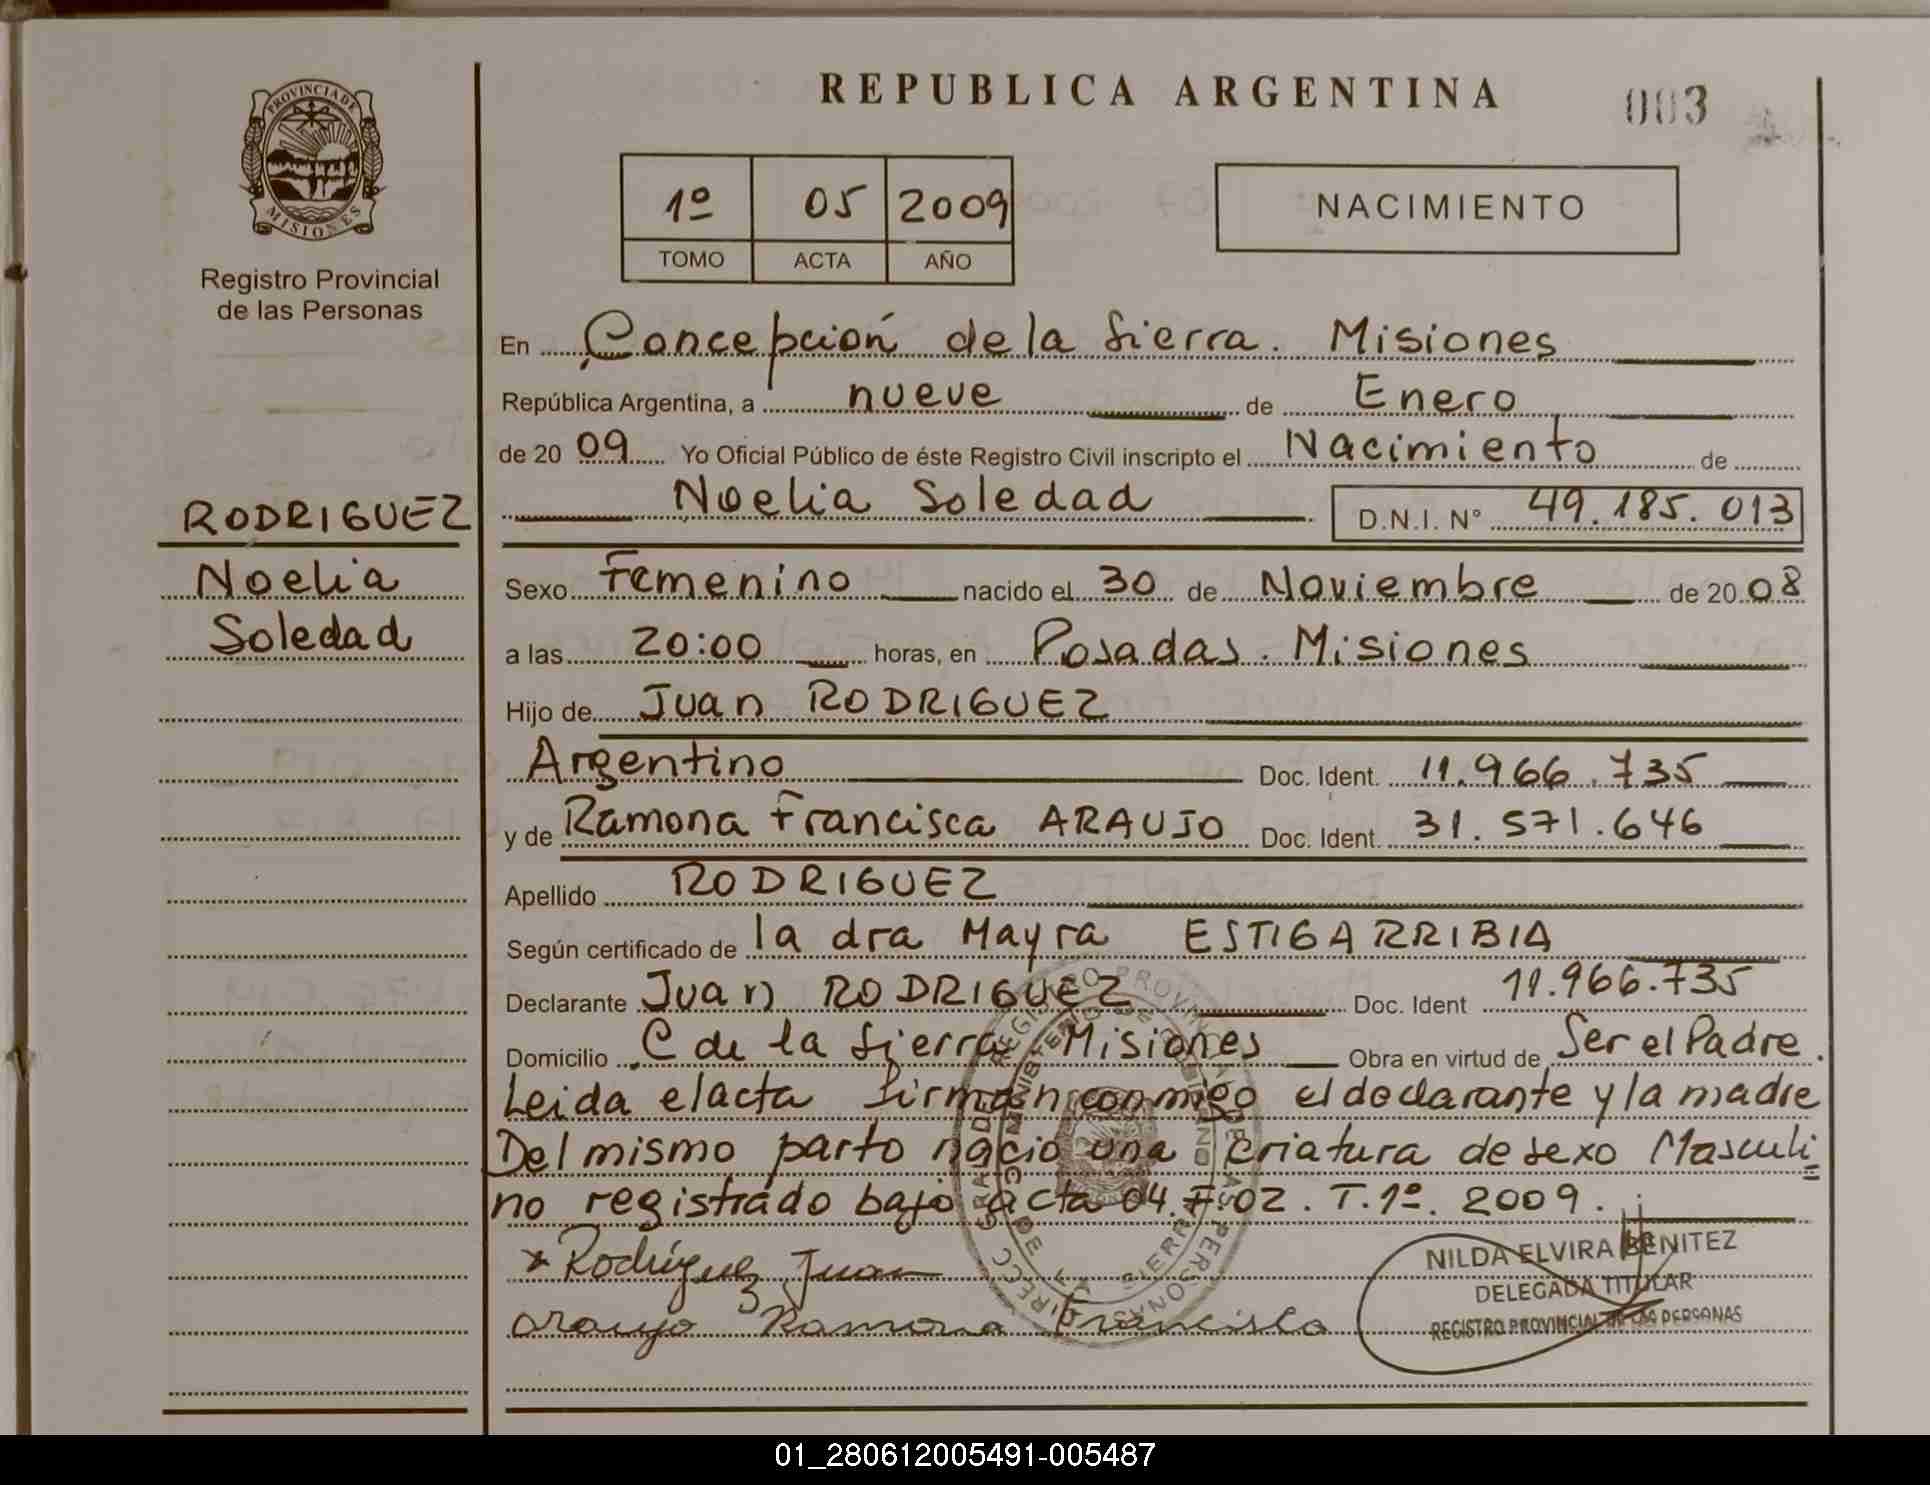 PROVINCIA DE
MISIONES
Registro Provincial
de las Personas
RODRIGUEZ
Noelia
Soledad
REPUBLICA ARGENTINA
003
1º 05 2009
TOMO ACTA AÑO
NACIMIENTO
En Concepción de la Sierra. Misiones
República Argentina, a nueve de Enero
de 2009 Yo Oficial Público de éste Registro Civil inscripto el Nacimiento de
Noelia Soledad D.N.I. N° 49.185.013
Sexo Femenino nacido el 30 de Noviembre de 2008
a las 20:00 horas, en Posadas. Misiones
Hijo de Juan RODRIGUEZ
Argentino Doc. Ident. 11.966.735
y de Ramona Francisca ARAUJO Doc. Ident. 31.571.646
Apellido RODRIGUEZ
Según certificado de la dra Mayra ESTIGARRIBIA
Declarante Juan RODRIGUEZ Doc. Ident 11.966.735
Domicilio C de la Sierra Misiones Obra en virtud de Ser el Padre.
Leida el acta firman conmigo el declarante y la madre
Del mismo parto nacio una criatura de sexo Masculi
no registrado bajo acta 04. F. 02. T. 1º. 2009.
x Rodríguez Juan
Araujo Ramona Francisca
NILDA ELVIRA BENITEZ
DELEGADA TITULAR
REGISTRO PROVINCIAL DE LAS PERSONAS
01_280612005491-005487